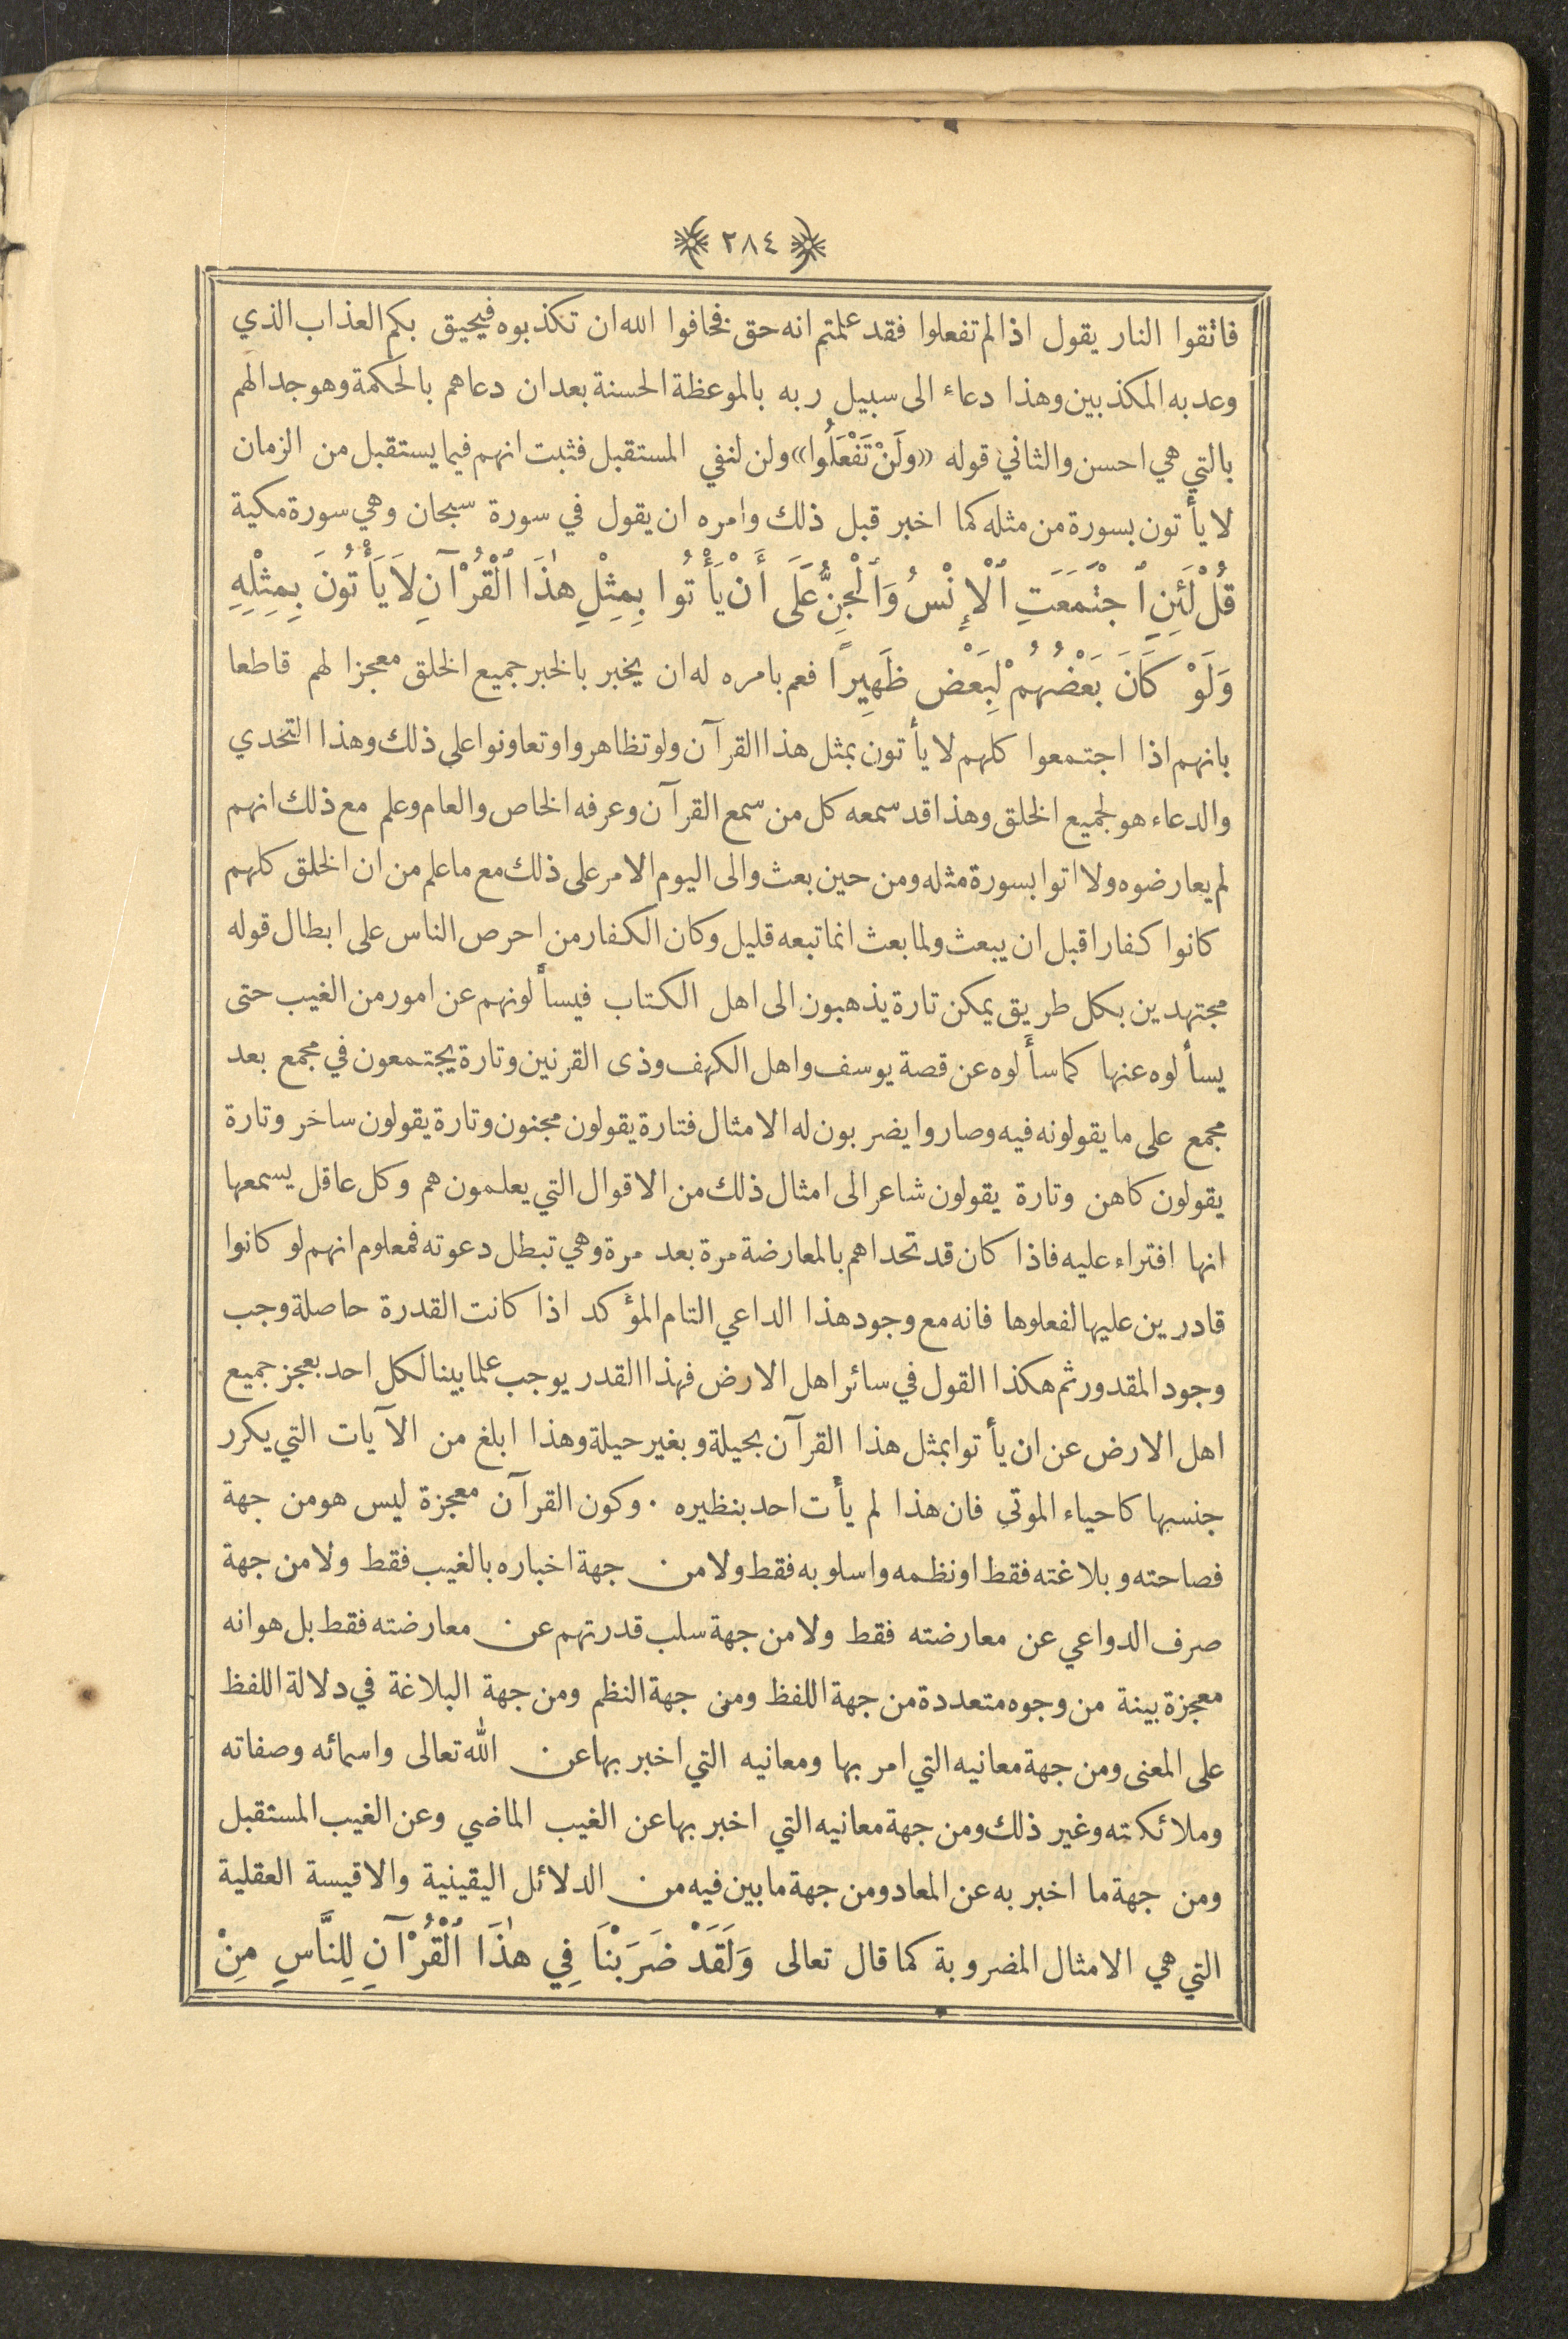 ﴿ ٢٨٤ ﴾
فاتقوا النار يقول اذا لم تفعلوا فقد علمتم انه حق فخافوا الله ان تكذبوه فيحيق بكم العذاب الذي
وعد به المكذبين وهذا دعاء الى سبيل ربه بالموعظة الحسنة بعد ان دعاهم بالحكمة وهو جدالهم
بالتي هي احسن والثاني قوله «ولَنْ تَفْعَلُوا» ولن لنفي المستقبل فثبت انهم فيما يستقبل من الزمان
لا يأتون بسورة من مثله كما اخبر قبل ذلك وامره ان يقول في سورة سبحان وهي سورة مكية
قُلْ لَئِنِ ٱجْتَمَعَتِ ٱلْإِنْسُ وَٱلْجِنُّ عَلَى أَنْ يَأْتُوا بِمِثْلِ هٰذَا ٱلْقُرْآنِ لاَ يَأْتُونَ بِمِثْلِهِ
وَلَوْ كَانَ بَعْضُهُمْ لِبَعْضٍ ظَهِيرًا فعم بامره له ان يخبر بالخبر جميع الخلق معجزا لهم قاطعا
بانهم اذا اجتمعوا كلهم لا يأتون بمثل هذا القرآن ولو تظاهروا وتعاونوا على ذلك وهذا التحدي
والدعاء هو لجميع الخلق وهذا قد سمعه كل من سمع القرآن وعرفه الخاص والعام وعلم مع ذلك انهم
لم يعارضوه ولا اتوا بسورة مثله ومن حين بعث والى اليوم الامر على ذلك مع ما علم من ان الخلق كلهم
كانوا كفارا قبل ان يبعث ولما بعث انما تبعه قليل وكان الكفار من احرص الناس على ابطال قوله
مجتهدين بكل طريق يمكن تارة يذهبون الى اهل الكتاب فيسألونهم عن امور من الغيب حتى
يسألوه عنها كما سألوه عن قصة يوسف واهل الكهف وذى القرنين وتارة يجتمعون في مجمع بعد
مجمع على ما يقولونه فيه وصاروا يضربون له الامثال فتارة يقولون مجنون وتارة يقولون ساخر وتارة
يقولون كاهن وتارة يقولون شاعر الى امثال ذلك من الاقوال التي يعلمون هم وكل عاقل يسمعها
انها افتراء عليه فاذا كان قد تحداهم بالمعارضة مرة بعد مرة وهي تبطل دعوته فمعلوم انهم لو كانوا
قادرين عليها لفعلوها فانه مع وجود هذا الداعي التام المؤكد اذا كانت القدرة حاصلة وجب
وجود المقدور ثم هكذا القول في سائر اهل الارض فهذا القدر يوجب علما بينا لكل احد بعجز جميع
اهل الارض عن ان يأتوا بمثل هذا القرآن بحيلة وبغير حيلة وهذا ابلغ من الآيات التي يكرر
جنسها كاحياء الموتى فان هذا لم يأت احد بنظيره ٠ وكون القرآن معجزة ليس هو من جهة
فصاحته وبلاغته فقط او نظمه واسلوبه فقط ولا من جهة اخباره بالغيب فقط ولا من جهة
صرف الدواعي عن معارضته فقط ولا من جهة سلب قدرتهم عن معارضته فقط بل هو انه
معجزة بينة من وجوه متعددة من جهة اللفظ ومن جهة النظم ومن جهة البلاغة في دلالة اللفظ
على المعنى ومن جهة معانيه التي امر بها ومعانيه التي اخبر بها عن الله تعالى واسمائه وصفاته
وملائكته وغير ذلك ومن جهة معانيه التي اخبر بها عن الغيب الماضي وعن الغيب المستقبل
ومن جهة ما اخبر به عن المعاد ومن جهة ما بين فيه من الدلائل اليقينية والاقيسة العقلية
التي هي الامثال المضروبة كما قال تعالى وَلَقَدْ ضَرَبْنَا فِي هٰذَا ٱلْقُرْآنِ لِلنَّاسِ مِنْ